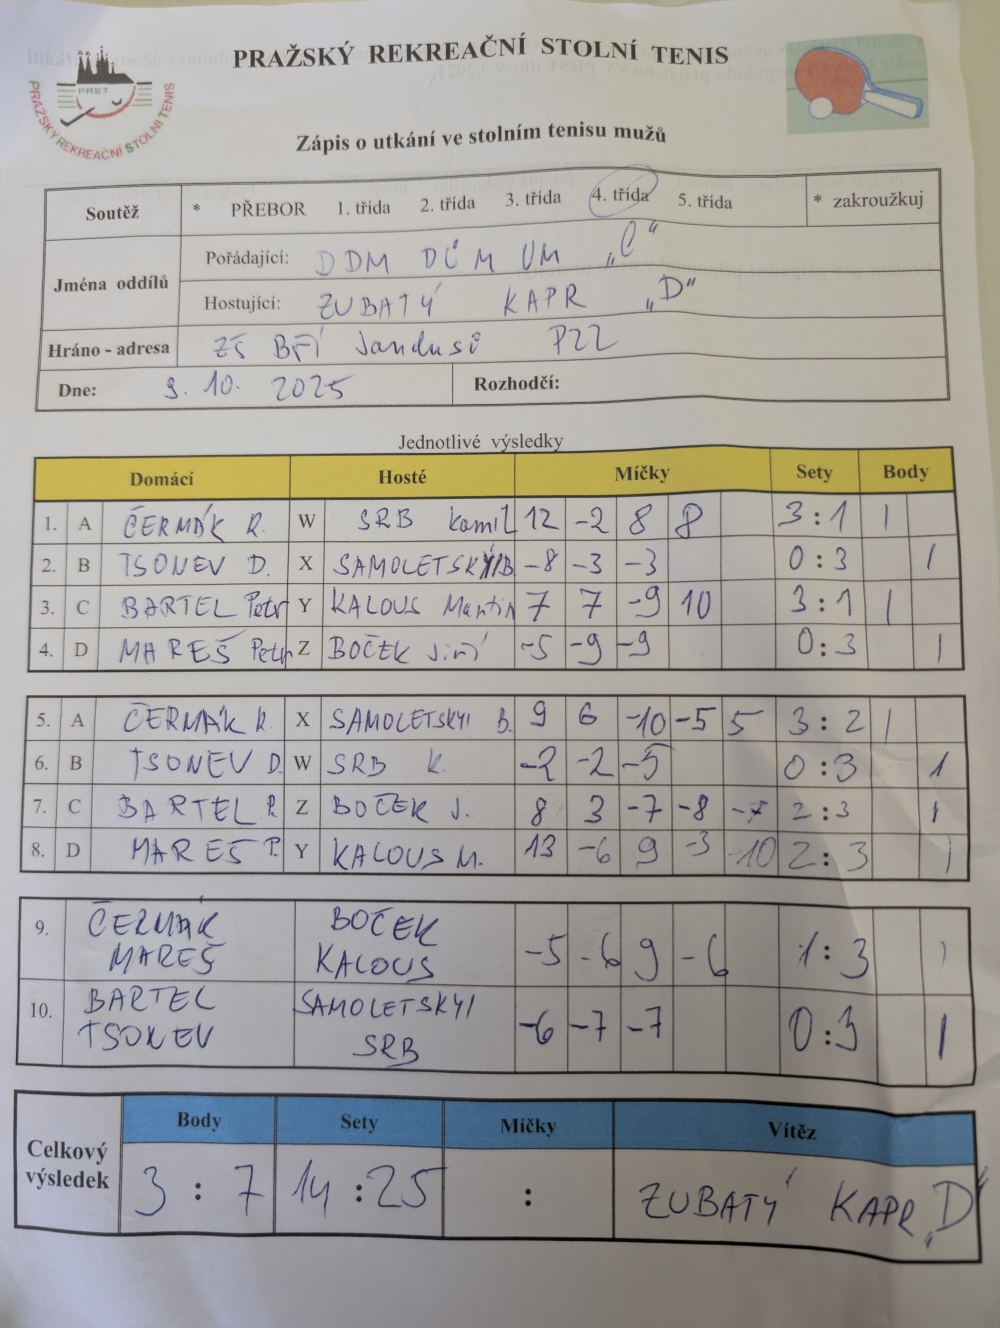 PRAŽSKÝ REKREAČNÍ STOLNÍ TENIS
PRST
PRAŽSKÝ REKREAČNÍ STOLNÍ TENIS
Zápis o utkání ve stolním tenisu mužů
Soutěž * PŘEBOR 1. třída 2. třída 3. třída 4. třída 5. třída * zakroužkuj
Jména oddílů
Pořádající: DDM DŮM UM „C“
Hostující: ZUBATÝ KAPR „D“
Hráno - adresa ZŠ BŘÍ Jandusů P22
Dne: 9. 10. 2025 Rozhodčí:
Jednotlivé výsledky
Domácí Hosté Míčky Sety Body
1. A ČERMÁK R. W SRB Kamil 12 -2 8 8 3:1 1
2. B TSONEV D. X SAMOLETSKÝI B -8 -3 -3 0:3 1
3. C BARTEL Petr Y KALOUS Martin 7 7 -9 10 3:1 1
4. D MAREŠ Petr Z BOČEK Jiří -5 -9 -9 0:3 1
5. A ČERMÁK R. X SAMOLETSKYI B. 9 6 -10 -5 5 3:2 1
6. B TSONEV D. W SRB K. -2 -2 -5 0:3 1
7. C BARTEL P. Z BOČEK J. 8 3 -7 -8 -7 2:3 1
8. D MAREŠ P. Y KALOUS M. 13 -6 9 -3 -10 2:3 1
9. ČERMÁK BOČEK
MAREŠ KALOUS -5 -6 9 -6 1:3 1
10. BARTEL SAMOLETSKÝI
TSONEV SRB -6 -7 -7 0:3 1
Celkový výsledek
Body Sety Míčky Vítěz
3 : 7 14 : 25 : ZUBATÝ KAPR „D“